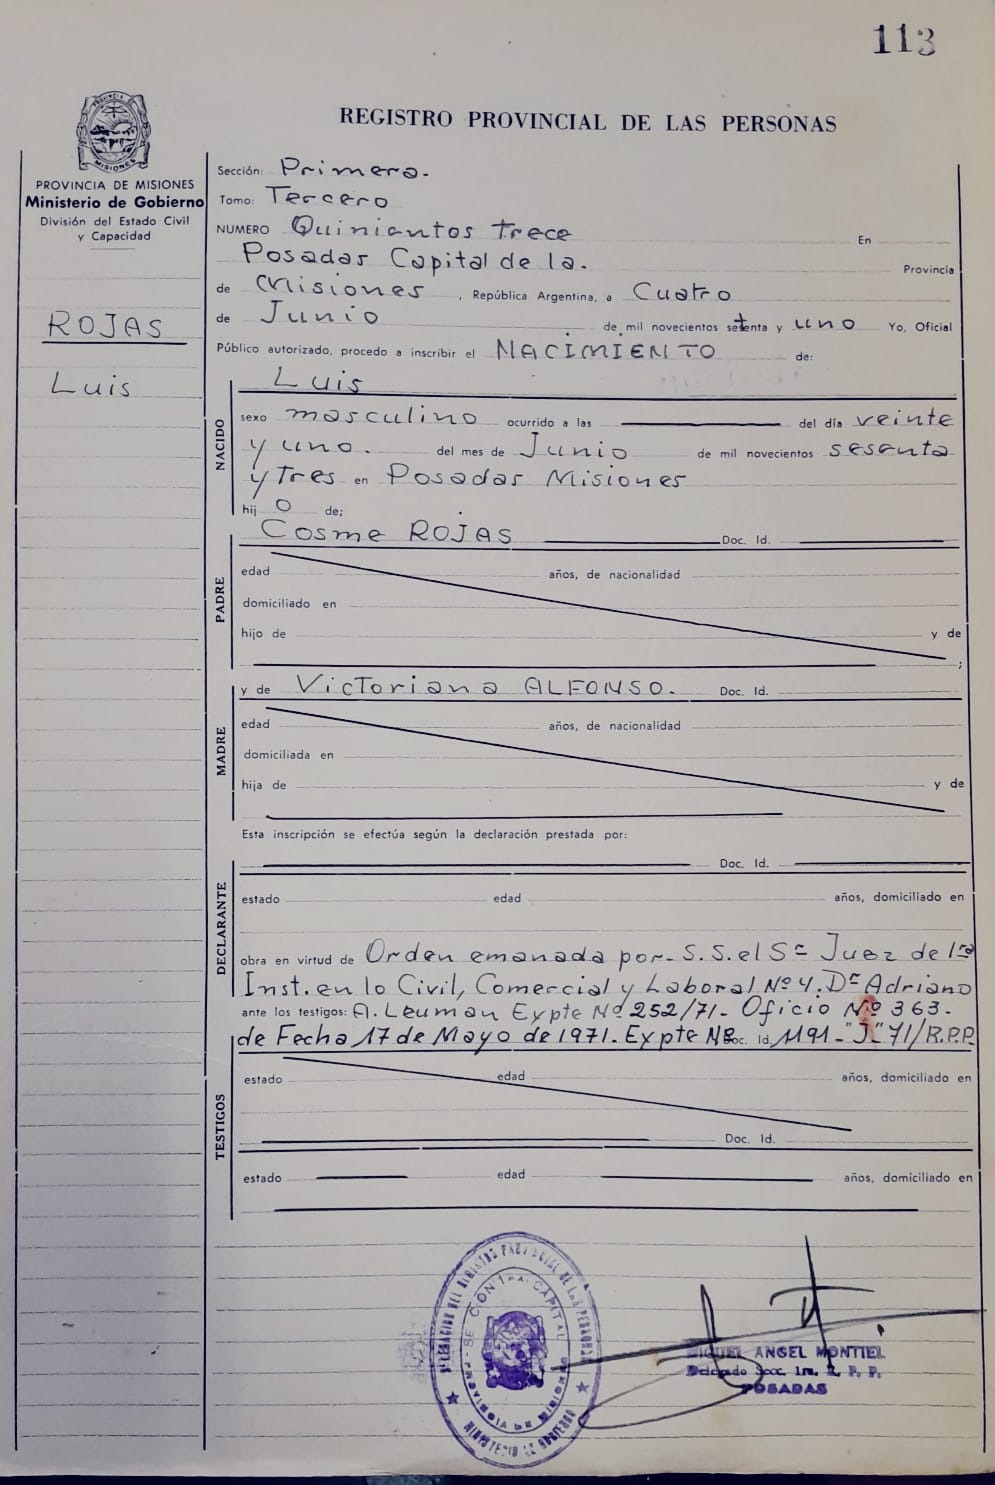 113
REGISTRO PROVINCIAL DE LAS PERSONAS
PROVINCIA DE MISIONES
Ministerio de Gobierno
División del Estado Civil
y Capacidad
ROJAS
Luis
Sección: Primera.
Tomo: Tercero
NUMERO Quinientos trece En
Posadas Capital de la. Provincia
de Misiones , República Argentina, a Cuatro
de Junio de mil novecientos setenta y uno Yo, Oficial
Público autorizado, procedo a inscribir el NACIMIENTO de:
NACIDO
Luis
sexo masculino ocurrido a las del día veinte
y uno. del mes de Junio de mil novecientos sesenta
y tres en Posadas Misiones
hij o de;
PADRE
Cosme ROJAS Doc. Id.
edad años, de nacionalidad
domiciliado en
hijo de y de
;
MADRE
y de Victoriana ALFONSO. Doc. Id.
edad años, de nacionalidad
domiciliada en
hija de y de
Esta inscripción se efectúa según la declaración prestada por:
DECLARANTE
Doc. Id.
estado edad años, domiciliado en
obra en virtud de Orden emanada por S.S. el Sr Juez de 1ra
Inst. en lo Civil, Comercial y Laboral Nº 4. Dr Adriano
ante los testigos: A. Leuman Expte Nº 252/71- Oficio Nº 363-
de Fecha 17 de Mayo de 1971. Expte Nº Doc. Id. 1191-"J"-71/R.P.P.
TESTIGOS
estado edad años, domiciliado en
Doc. Id.
estado edad años, domiciliado en
DELEGACION DEL REGISTRO PROVINCIAL DE LAS PERSONAS
SECCION 1ra. CAPITAL
PROVINCIA DE MISIONES
MINISTERIO DE GOBIERNO
MIGUEL ANGEL MONTIEL
Delegado Secc. 1ra. R. P. P.
POSADAS